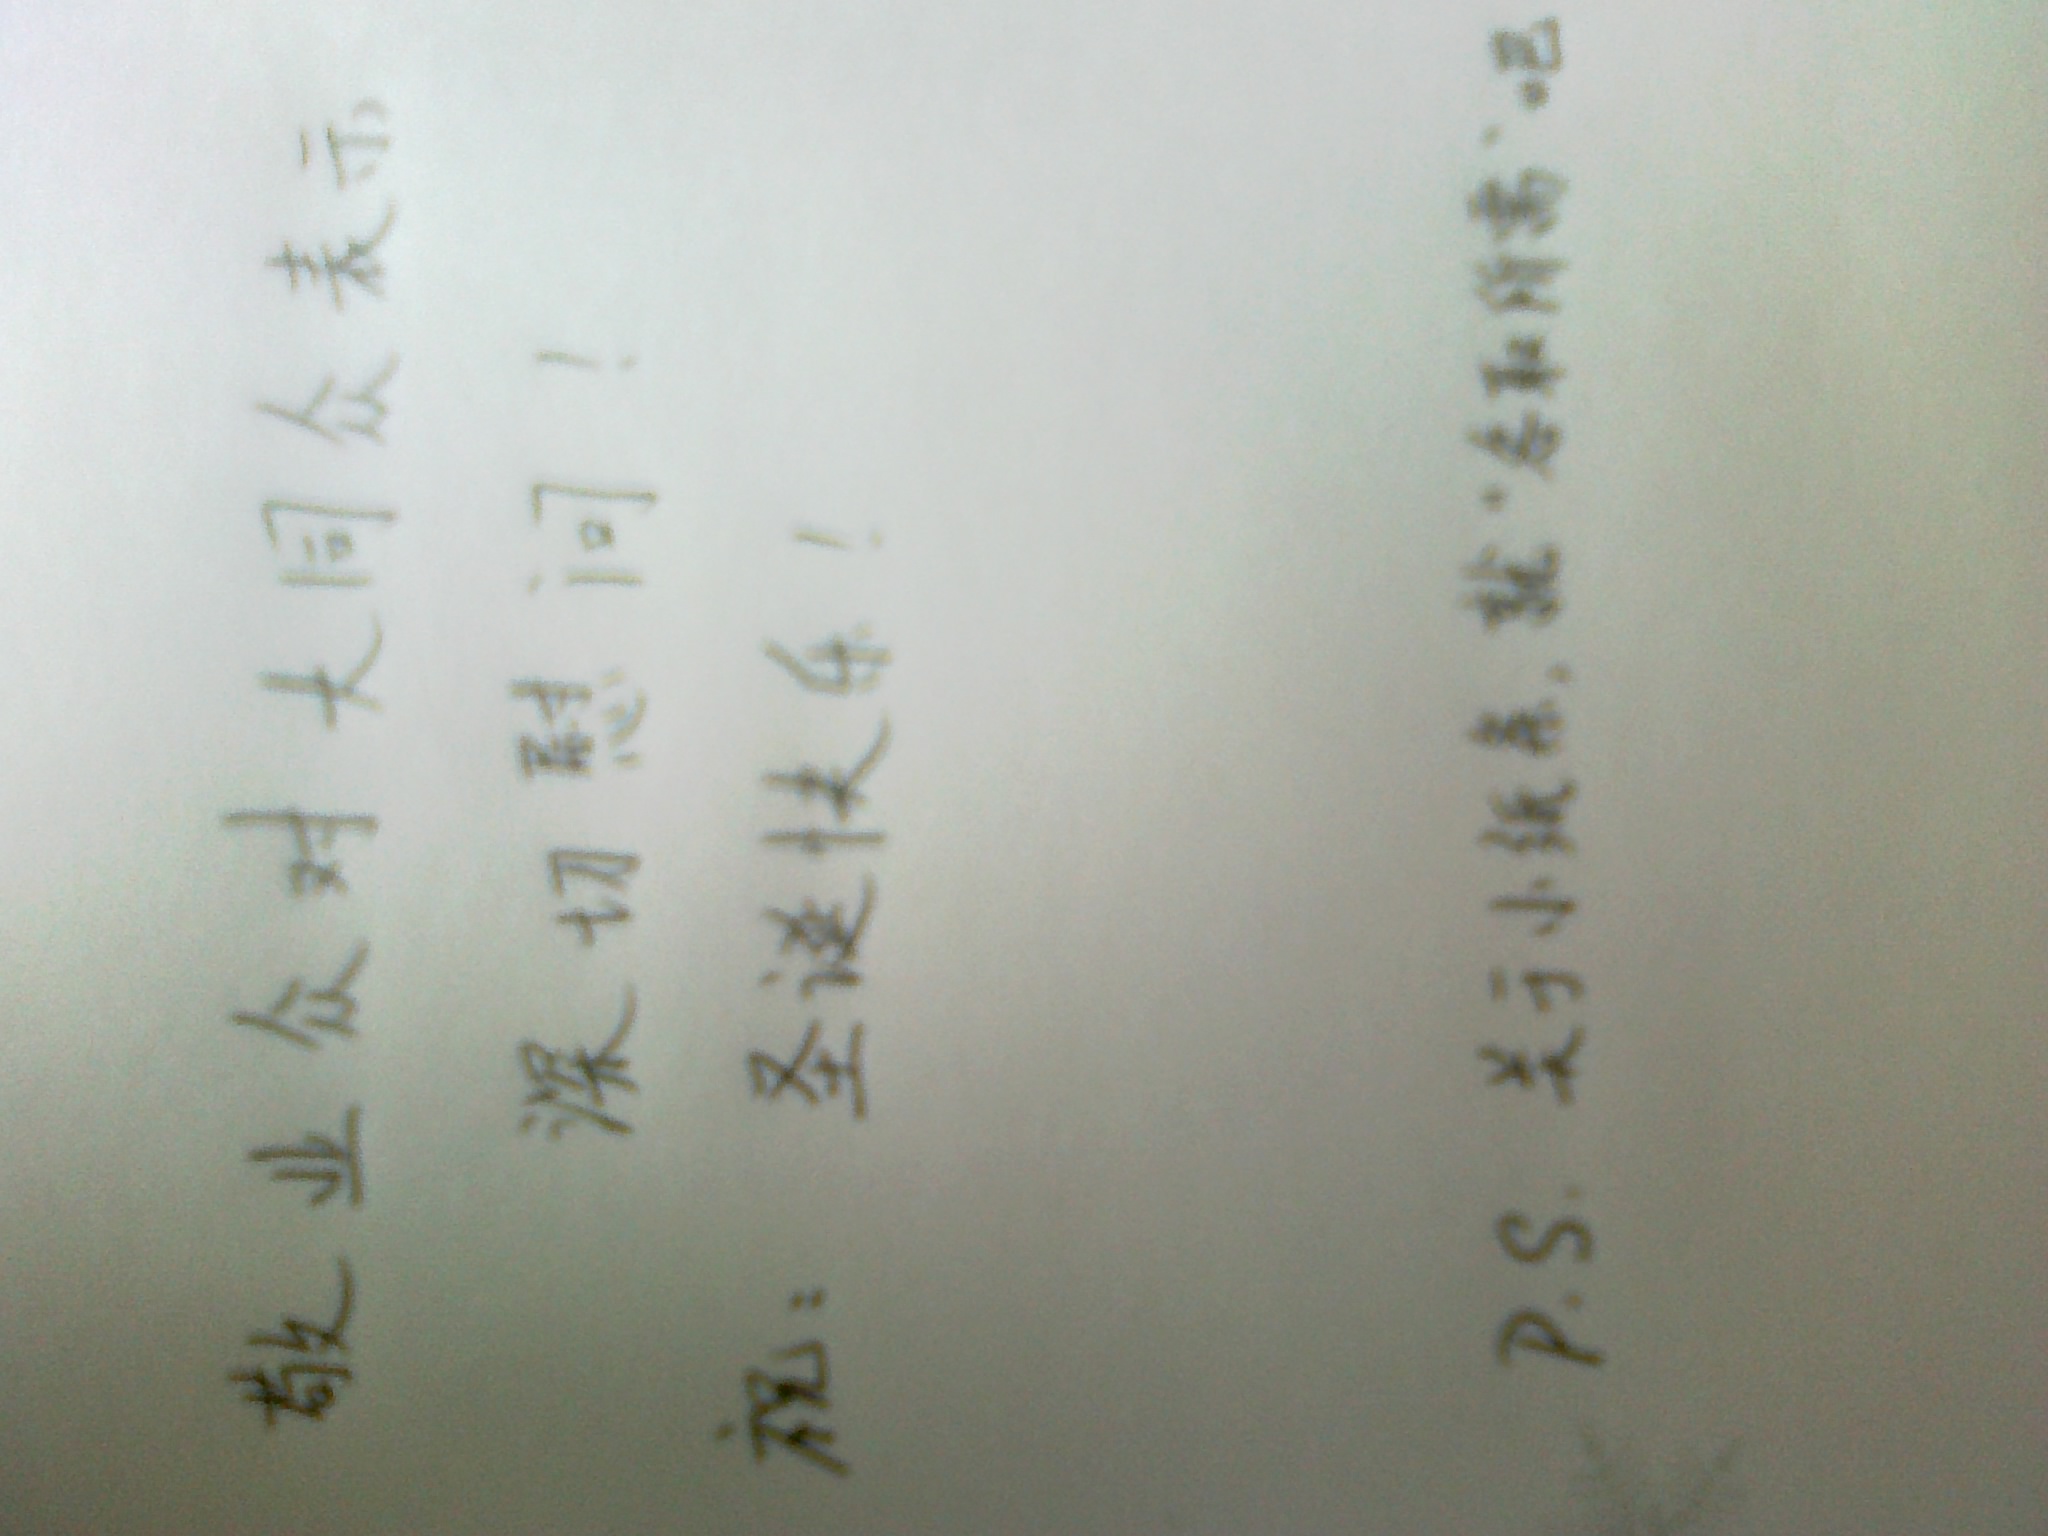 敬业众对大同众表示
深切慰问！
祝：圣诞快乐！
P.S. 关于小纸条，就“各取所需”吧